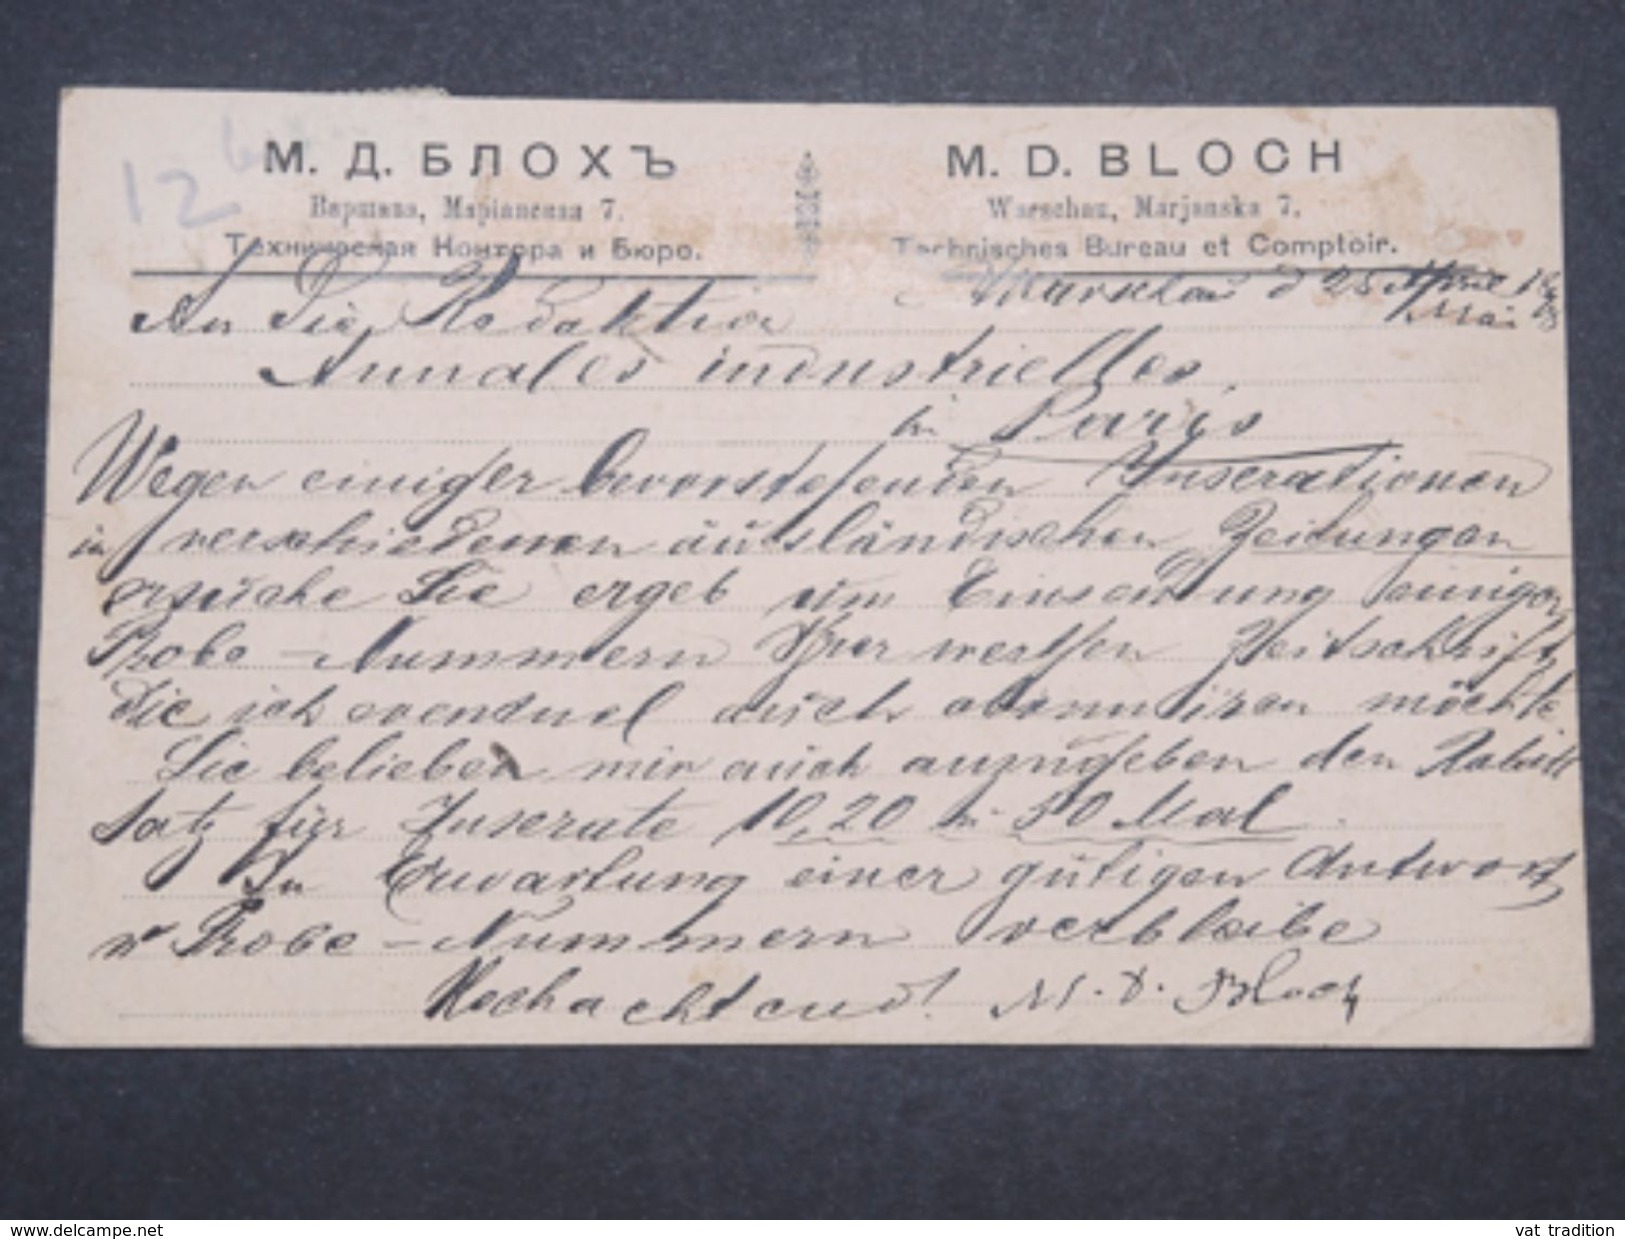 12
М. Д. БЛОХЪ
Варшава, Маріанская 7.
Техническая Контора и Бюро.
M. D. BLOCH
Warschau, Marjanska 7.
Technisches Bureau et Comptoir.
Warschau d 25 April
Mai
An die Redaktion
Annales industrielles
in Paris
Wegen einiger bevorstehenden Inserationen
in verschiedenen ausländischen Zeidungen
ersuche Sie ergeb um Einsendung einiger
Probe-Nummern Ihrer werthen Zeitschrift,
die ich evenduel auch abonniren möchte.
Sie belieben mir auch anzugeben den Rabatt
satz für Inserate 10, 20 30 Mal.
In Erwartung einer gütigen Antwort
Probe-Nummern verbleibe
Hochachtend! M. D. Bloch
delcampe.net
vat tradition